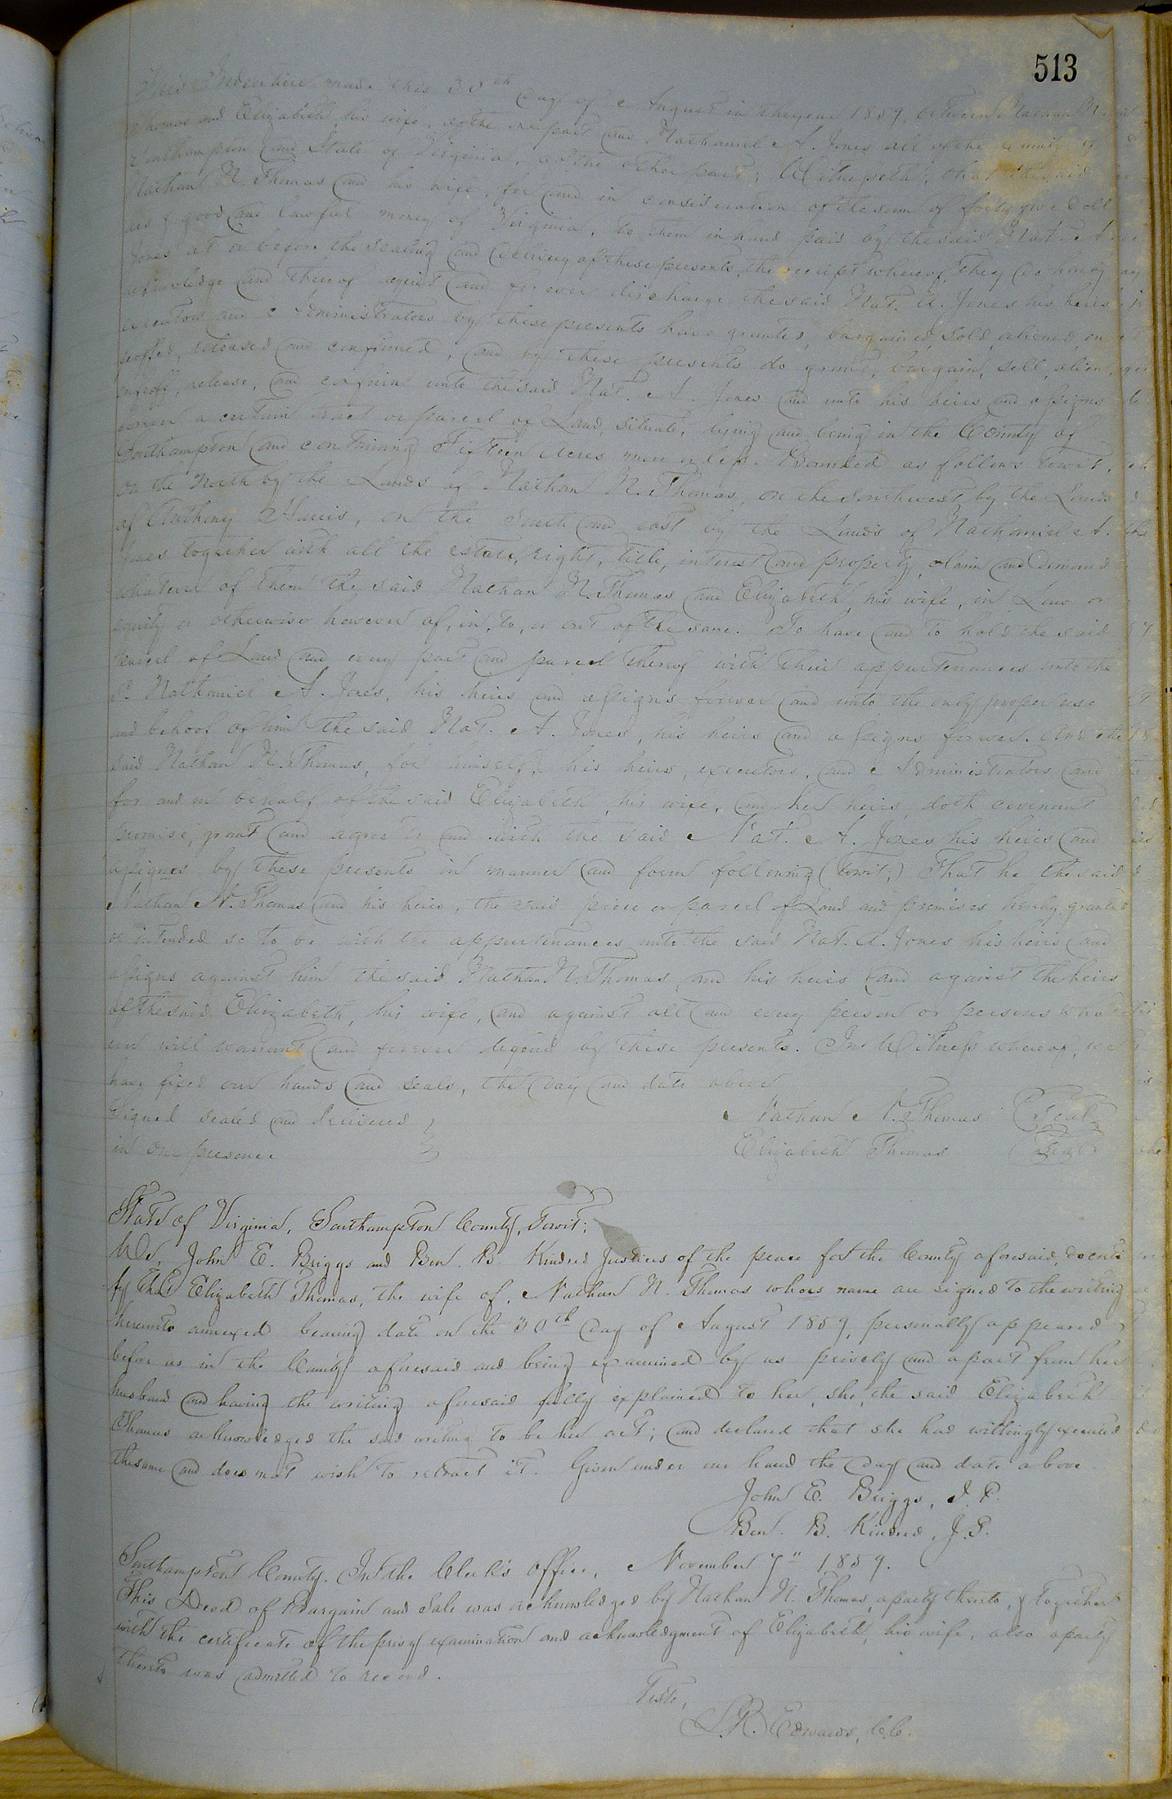 513
This Indenture made this 30th day of August in the year 1859, between Nathan N.
Thomas and Elizabeth, his wife, of the one part and Nathaniel A. Jones all of the County of
Southampton and State of Virginia, of the other part; Witnesseth; that the said
Nathan N. Thomas and his wife, for and in consideration of the sum of forty five doll
ars of good and lawful money of Virginia, to them in hand paid by the said Nat. A.
Jones at or before the sealing and delivery of these presents, the receipt whereof, they do hereby
acknowledge and thereof acquit and forever discharge the said Nat. A. Jones his heirs
executors and Administrators by these presents have granted, bargained, sold, aliened en
feoffed, released and confirmed, and by these presents do grant, bargain, sell, alien,
enfeoff, release, and confirm unto the said Nat. A. Jones and unto his heirs and assigns
forever a certain tract or parcel of Land, situate, lying and being in the County of
Southampton and containing Fifteen Acres more or less. Bounded as follows towit,
on the North by the Lands of Nathan N. Thomas, on the Southwest by the Lands
of Anthony Harris, on the South and east by the Lands of Nathaniel A.
Jones together with all the estate, right, title, interest and property, claim and demand
whatever of them the said Nathan N. Thomas and Elizabeth, his wife, in Law or
equity or otherwise however of, in, to, or out of the same. To have and to hold the said
parcel of Land and every part and parcel thereof with their appurtenances unto the
sd. Nathaniel A. Jones, his heirs and assigns forever and unto the only proper use
and behoof of him the said Nat. A. Jones, his heirs and assigns forever. And the
said Nathan N. Thomas, for himself, his heirs, executors, and Administrators and
for and in behalf of the said Elizabeth, his wife, and her heirs, doth covenant
promise, grant and agree to and with the said Nat. A. Jones his heirs and
assigns by these presents in manner and form following (towit,) That he the said
Nathan N. Thomas and his heirs, the said piece or parcel of Land and premises hereby granted
or intended so to be with the appurtenances unto the said Nat. A. Jones his heirs and
assigns against him the said Nathan N. Thomas, and his heirs and against the heirs
of the said Elizabeth, his wife, and against all and every person or persons whatso
ever will warrant and forever defend by these presents. In Witness whereof, we
have fixed our hands and seals, the day and date above
Signed sealed and delivered
in our presence
Nathan N. Thomas Seal
Elizabeth Thomas Seal
State of Virginia, Southampton County, Towit;
We, John E. Briggs and Ben. B. Kindred Justices of the peace for the County aforesaid, do certi
fy that Elizabeth Thomas, the wife of, Nathan N. Thomas whoes name are signed to the writing
hereunto annexed bearing date on the 30th day of August 1859, personally appeared
before us in the County aforesaid and being examined by us privily and apart from her
husband and having the writing aforesaid fully explained to her, she, the said Elizabeth
Thomas acknowledged the said writing to be her act; and declared that she had willingly executed
the same and does not wish to retract it. Given under our hand the day and date above
John E. Briggs, J. P.
Ben. B. Kindred, J. P.
Southampton County. In the Clerk's Office, November 7" 1859.
This Deed of Bargain and Sale was acknowledged by Nathan N. Thomas, a party thereto, & together
with the certificate of the privy examination and acknowledgment of Elizabeth, his wife, also a party
thereto was admitted to record.
Teste,
L. R. Edwards, C.C.